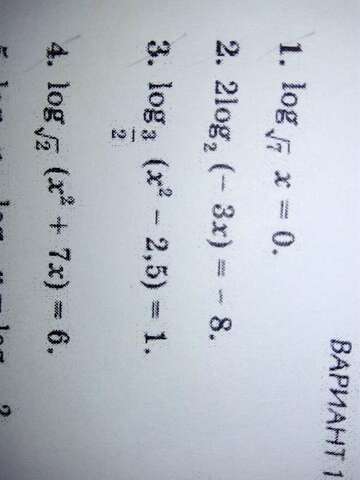 ВАРИАНТ 1
1. log√7 x = 0.
2. 2log₂ (– 3x) = – 8.
3. log 3/2 (x² – 2,5) = 1.
4. log√2 (x² + 7x) = 6.